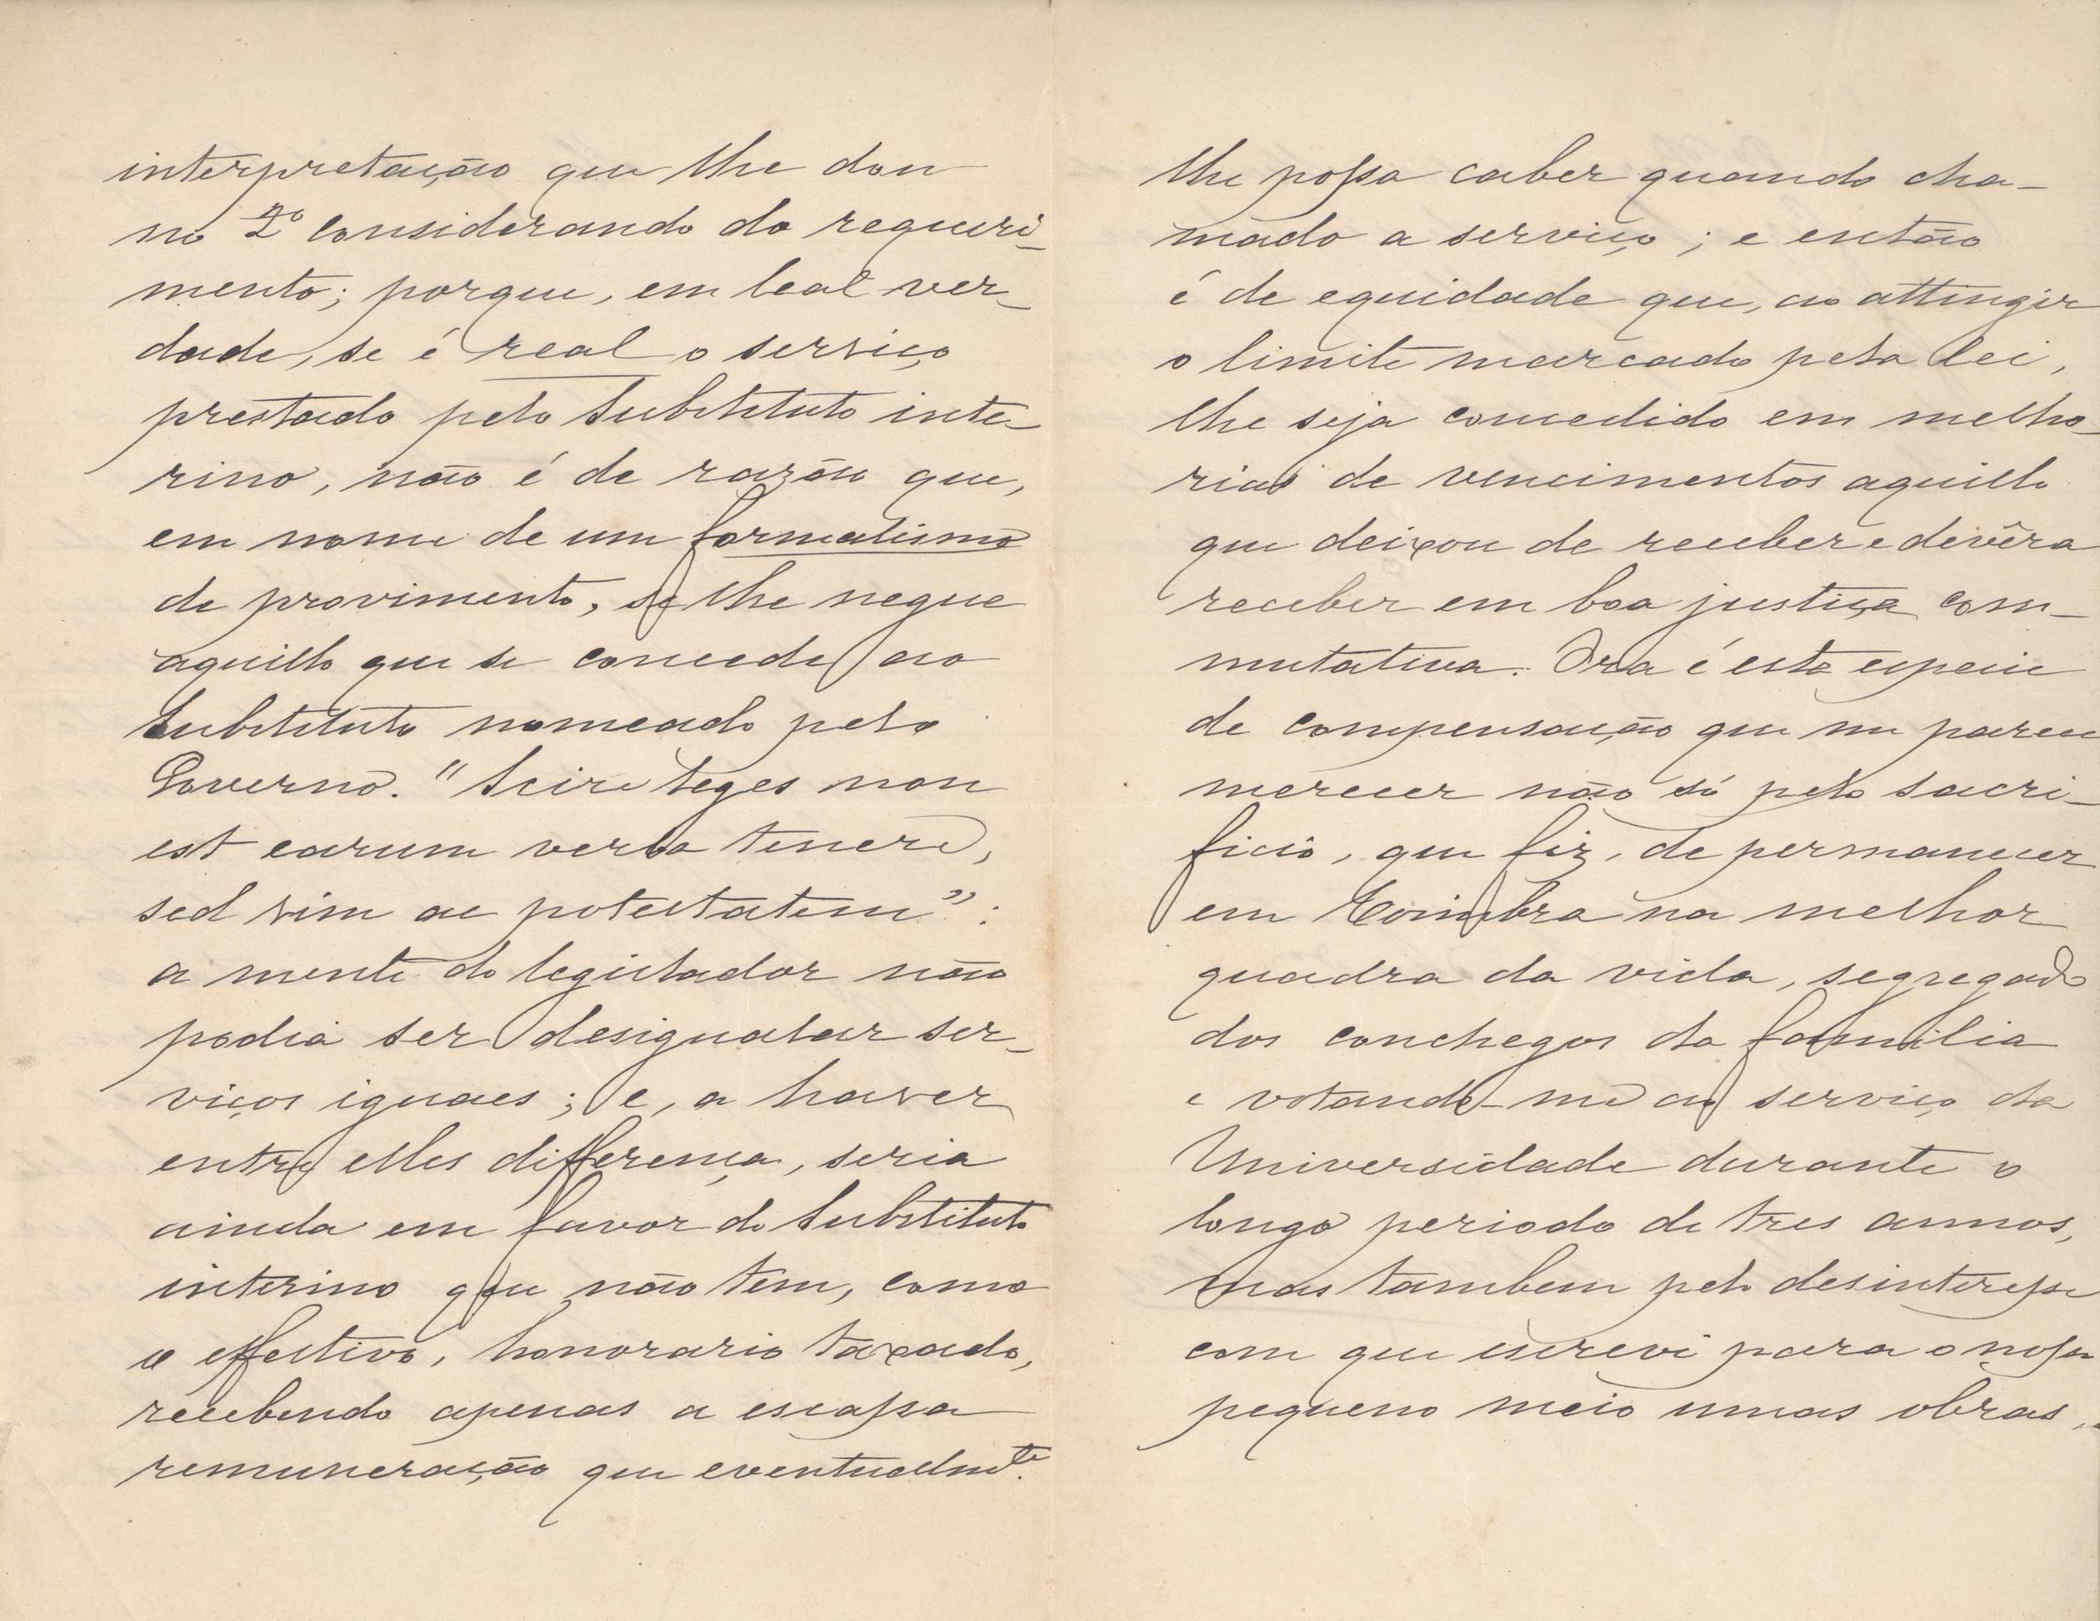 interpretação que lhe dou
no 2º considerando do requeri-
mento; porque, em leal ver-
dade, se é real o serviço
prestado pelo substituto inte-
rino, não é de razão que,
em nome de um formalismo
de provimento, se lhe negue
aquillo que se concede ao
substituto nomeado pelo
Governo. "Scire leges non
est earum verba tenere,
sed vim ac potestatem":
a mente do legislador não
podia ser desigualar ser-
viços iguaes; e, a haver
entre elles differença, seria
ainda em favor do substituto
interino que não tem, como
o effectivo, honorario taxado,
recebendo apenas a escassa
remuneração que eventualmte.
lhe possa caber quando cha-
mado a serviço; e então
é de equidade que, ao attingir
o limite marcado pela lei,
lhe seja concedido em melho-
rias de vencimentos aquillo
que deixou de receber e devêra
receber em boa justiça com-
mutativa. Ora é esta especie
de compensação que me parece
merecer não só pelo sacri-
ficio, que fiz, de permanecer
em Coimbra na melhor
quadra da vida, segregado
dos conchegos da familia
e votando-me ao serviço da
Universidade durante o
longo periodo de tres annos,
mas tambem pelo desinteresse
com que escrevi para o nosso
pequeno meio umas obras,